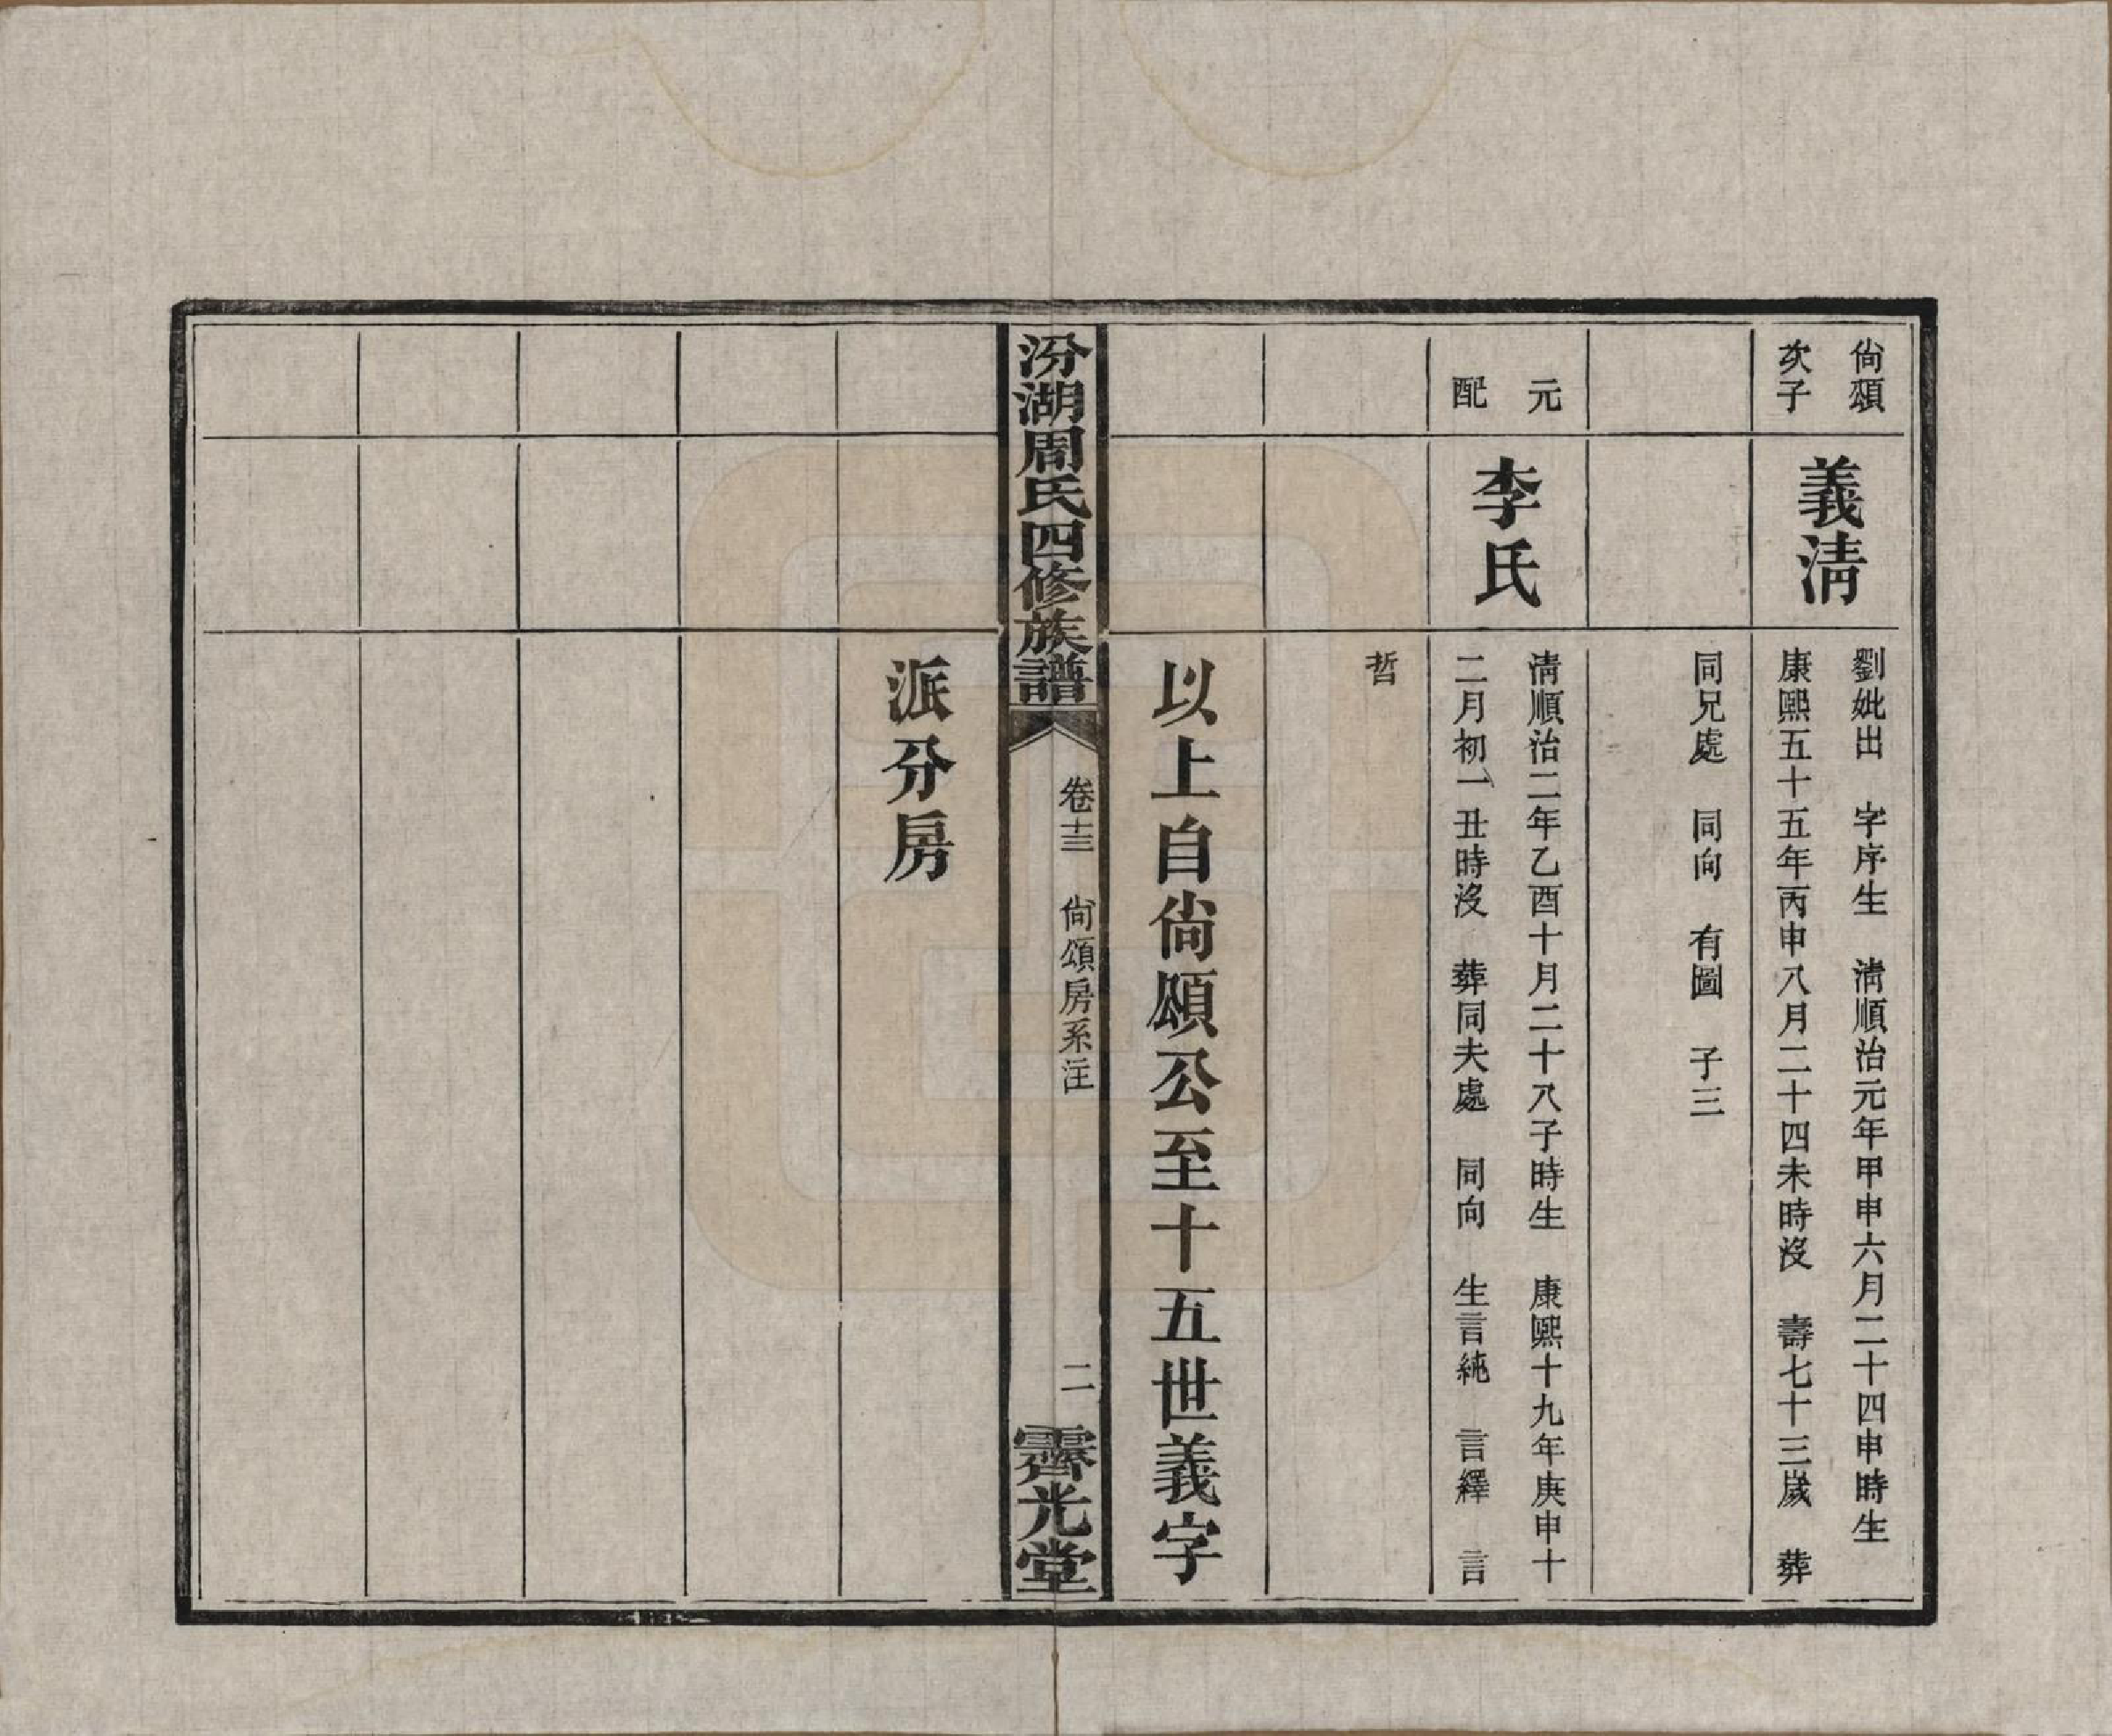 尙頌
次子
義淸
劉妣出　字序生　淸順治元年甲申六月二十四申時生
康熙五十五年丙申八月二十四未時沒　壽七十三歲　葬
同兄處　同向　有圖　子三
元
配
李氏
淸順治二年乙酉十月二十八子時生　康熙十九年庚申十
二月初一丑時沒　葬同夫處　同向　生言純　言繹　言
哲
以上自尙頌公至十五世義字
汾湖周氏四修族譜
卷十三　尙頌房系注
二
霽光堂
派分房